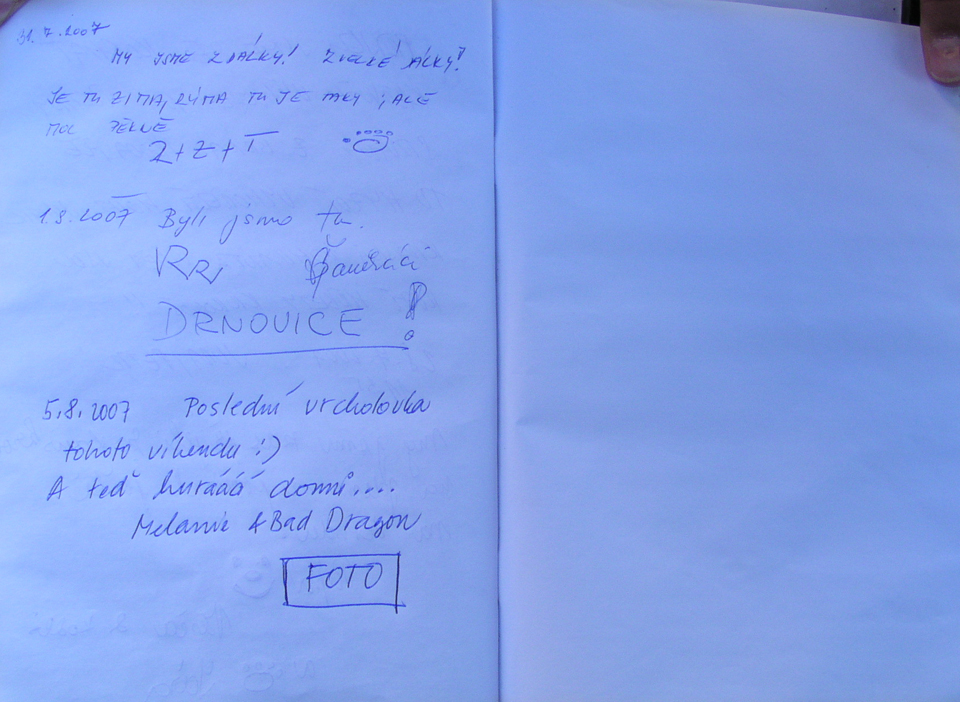 31.7.2007
MY JSME Z DÁLKY! Z VELKÉ DÁLKY!
JE TU ZIMA, RÝMA TU JE TAKY, ALE
MOC PĚKNĚ
Z+Z+T
1.8.2007 Byli jsme tu.
RR
DRNOVICE !
5.8.2007 Poslední vrcholovka
tohoto víkendu :)
A teď hurááá domů....
Melanie & Bad Dragon
FOTO